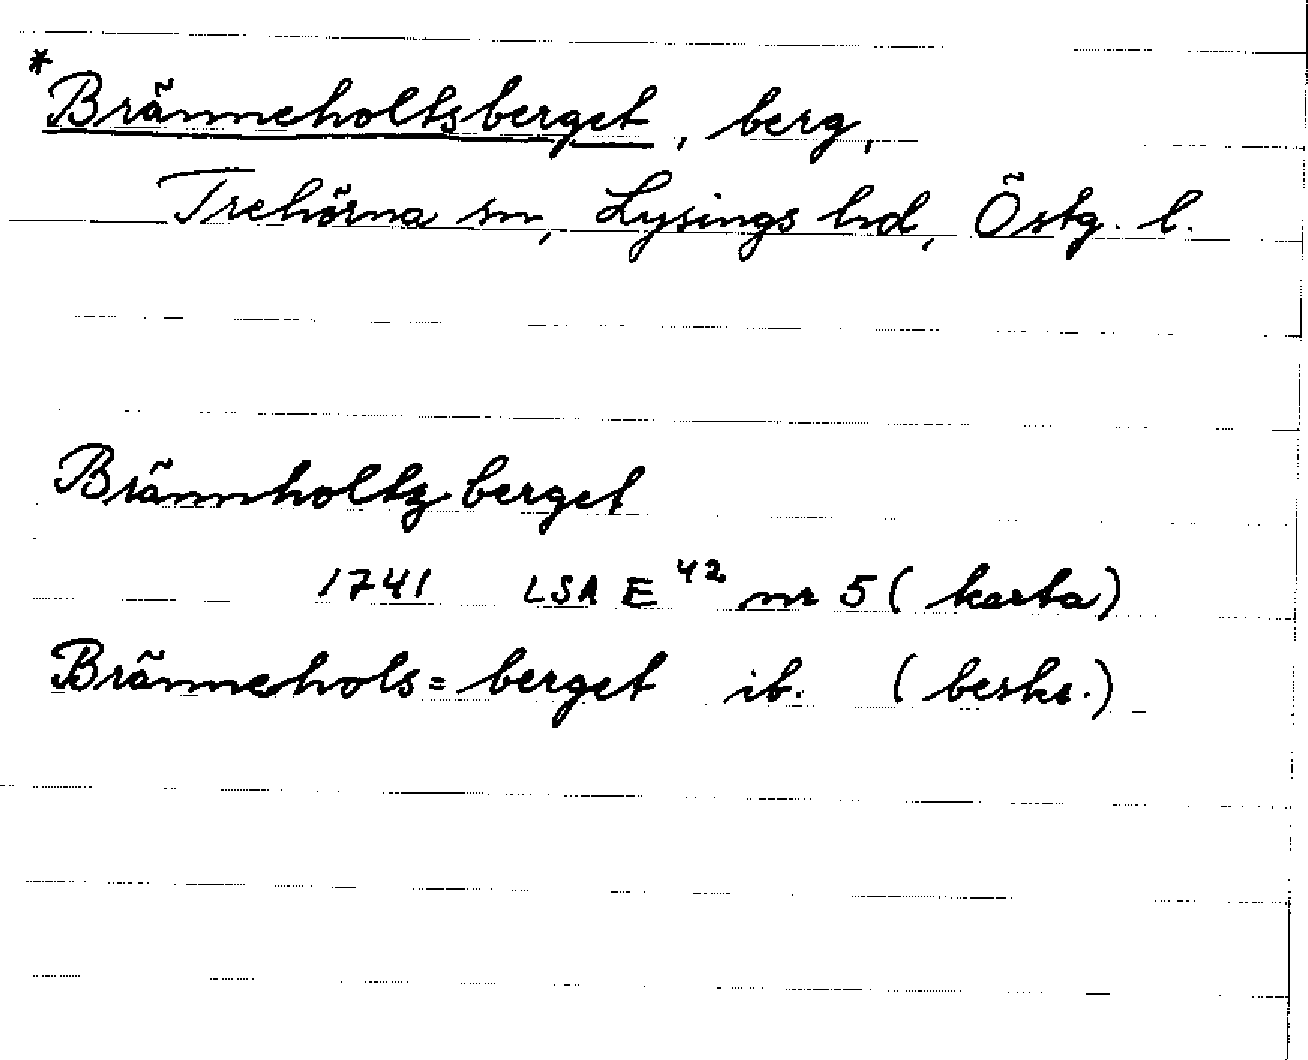 *Bränneholtsberget, berg,
Trehörna sn, Lysings hd, Östg. l.
Brännholtz berget
1741 LSA E⁴² nr 5 (karta)
Brännehols= berget ib. (beskr.)